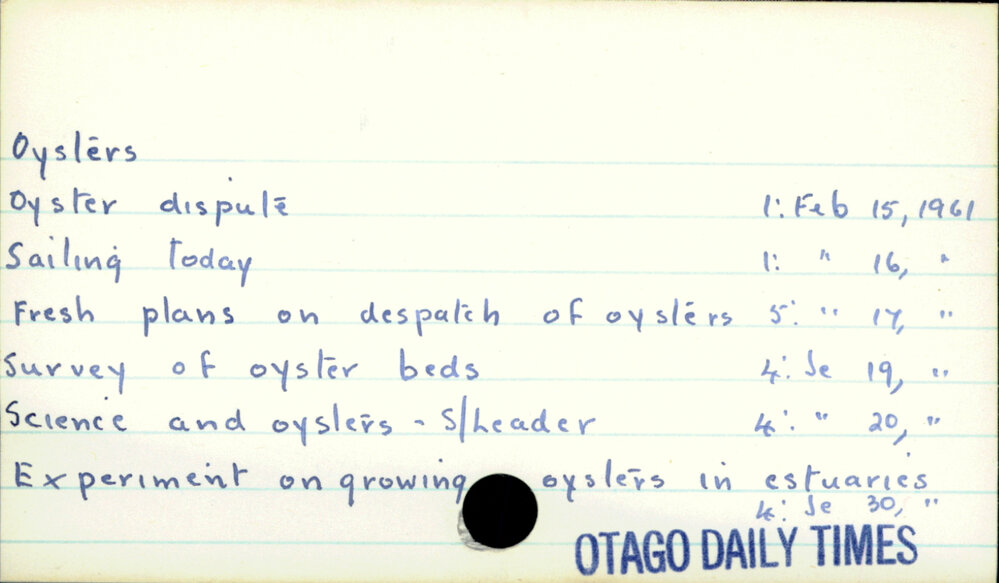 Oysters
Oyster dispute 1: Feb 15, 1961
Sailing today 1: " 16, "
Fresh plans on despatch of oysters 5: " 17, "
Survey of oyster beds 4: Je 19, "
Science and oysters - S/Leader 4: " 20, "
Experiment on growing oysters in estuaries
4: Je 30, "
OTAGO DAILY TIMES